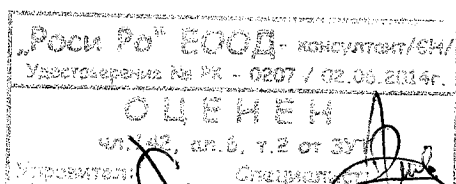 „Роси Ро“ ЕООД - консултант/СН/
Удостоверение № РК - 0207 / 02.06.2014г.
ОЦЕНЕН
чл.142, ал.6, т.2 от ЗУТ
Управител: Специалист: